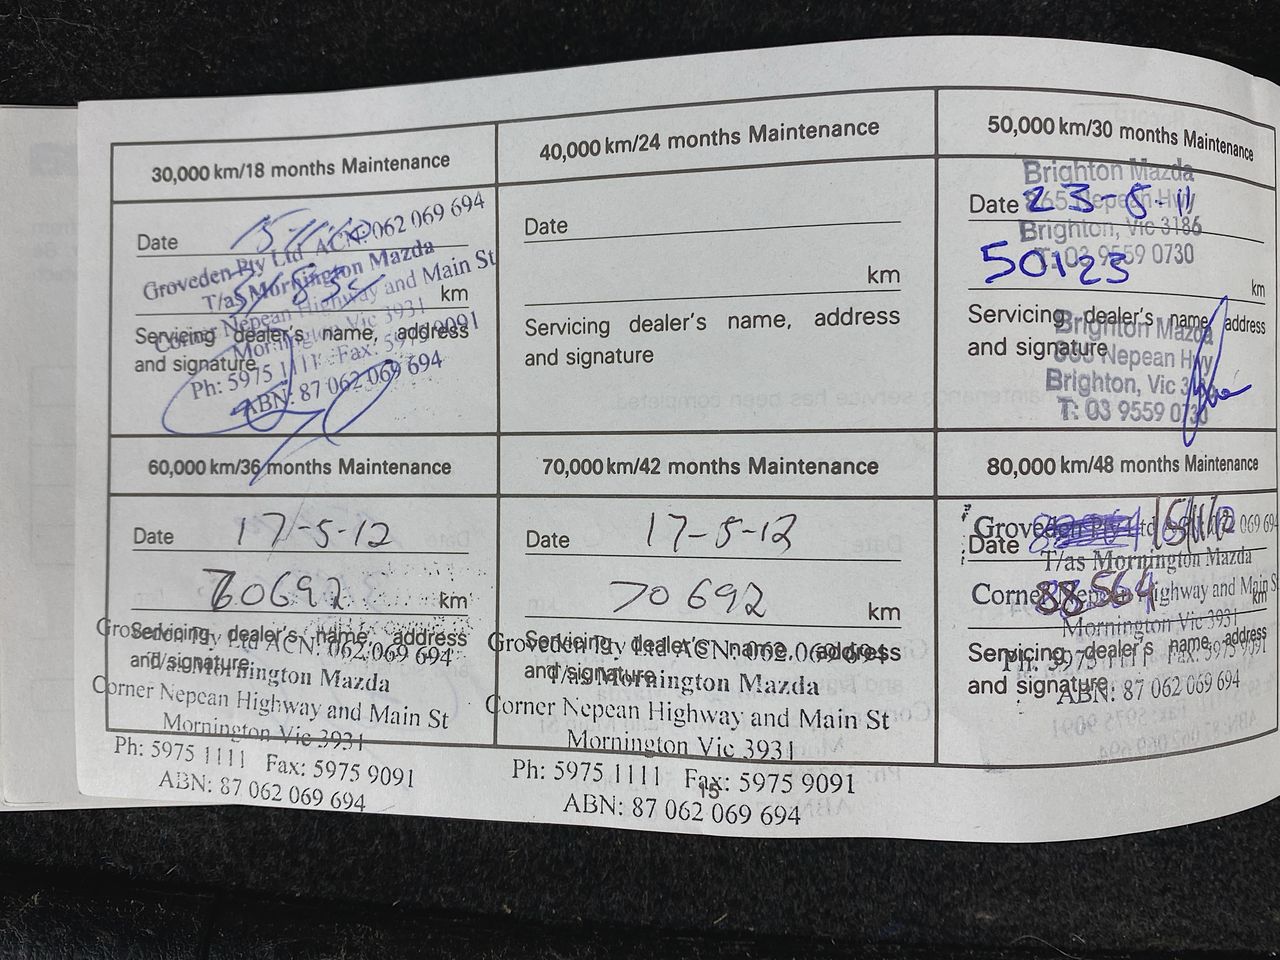 30,000 km/18 months Maintenance
Date
Groveden Pty Ltd ACN: 062 069 694
T/as Mornington Mazda
Corner Nepean Highway and Main St
Mornington Vic 3931
Ph: 5975 1111 Fax: 5975 9091
ABN: 87 062 069 694
km
Servicing dealer's name, address
and signature
40,000 km/24 months Maintenance
Date
km
Servicing dealer's name, address
and signature
50,000 km/30 months Maintenance
Brighton Mazda
Date 23-5-11
865 Nepean Hwy
Brighton, Vic 3186
T: 03 9559 0730
50123
km
Servicing dealer's name, address
and signature
Brighton Mazda
865 Nepean Hwy
Brighton, Vic
T: 03 9559 0730
60,000 km/36 months Maintenance
Date 17-5-12
km
Servicing dealer's name, address
and signature
Groveden Pty Ltd ACN: 062 069 694
T/as Mornington Mazda
Corner Nepean Highway and Main St
Mornington Vic 3931
Ph: 5975 1111 Fax: 5975 9091
ABN: 87 062 069 694
70,000 km/42 months Maintenance
Date 17-5-12
70692
km
Servicing dealer's name, address
and signature
Groveden Pty Ltd ACN: 062 069 694
T/as Mornington Mazda
Corner Nepean Highway and Main St
Mornington Vic 3931
Ph: 5975 1111 Fax: 5975 9091
ABN: 87 062 069 694
80,000 km/48 months Maintenance
Groveden Pty Ltd 069 694
Date
T/as Mornington Mazda
Corner Nepean Highway and Main S
88564
km
Mornington Vic 3931
Servicing dealer's name, address
and signature
Ph: 5975 1111 Fax: 5975 9091
ABN: 87 062 069 694
15